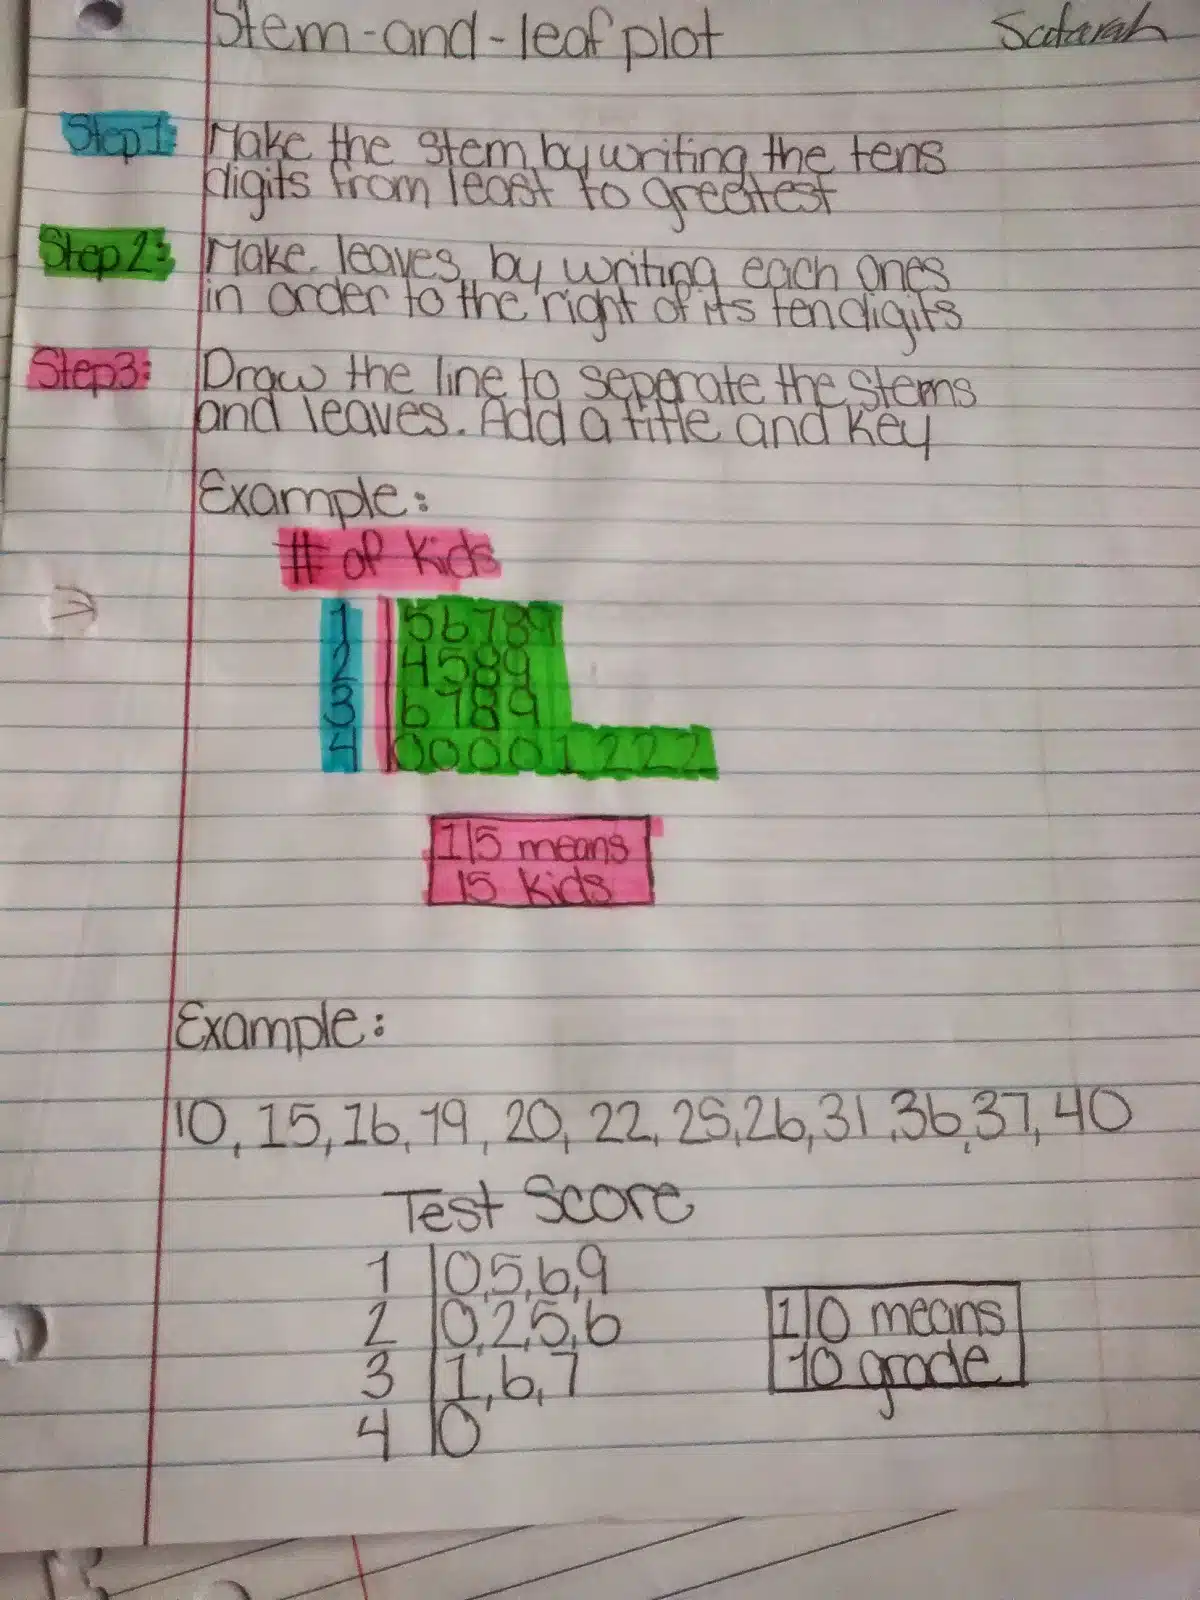 Stem-and-leaf plot
Satarah
Step1: Make the stem by writing the tens
digits from least to greatest
Step2: Make leaves by writing each ones
in order to the right of its ten digits
Step3: Draw the line to seperate the stems
and leaves. Add a title and key
Example:
# of Kids
1 | 56789
2 | 4589
3 | 6789
4 | 00001222
1|5 means
15 kids
Example:
10, 15, 16, 19, 20, 22, 25, 26, 31, 36, 37, 40
Test Score
1 | 0,5,6,9
2 | 0,2,5,6
3 | 1,6,7
4 | 0
1|0 means
10 grade